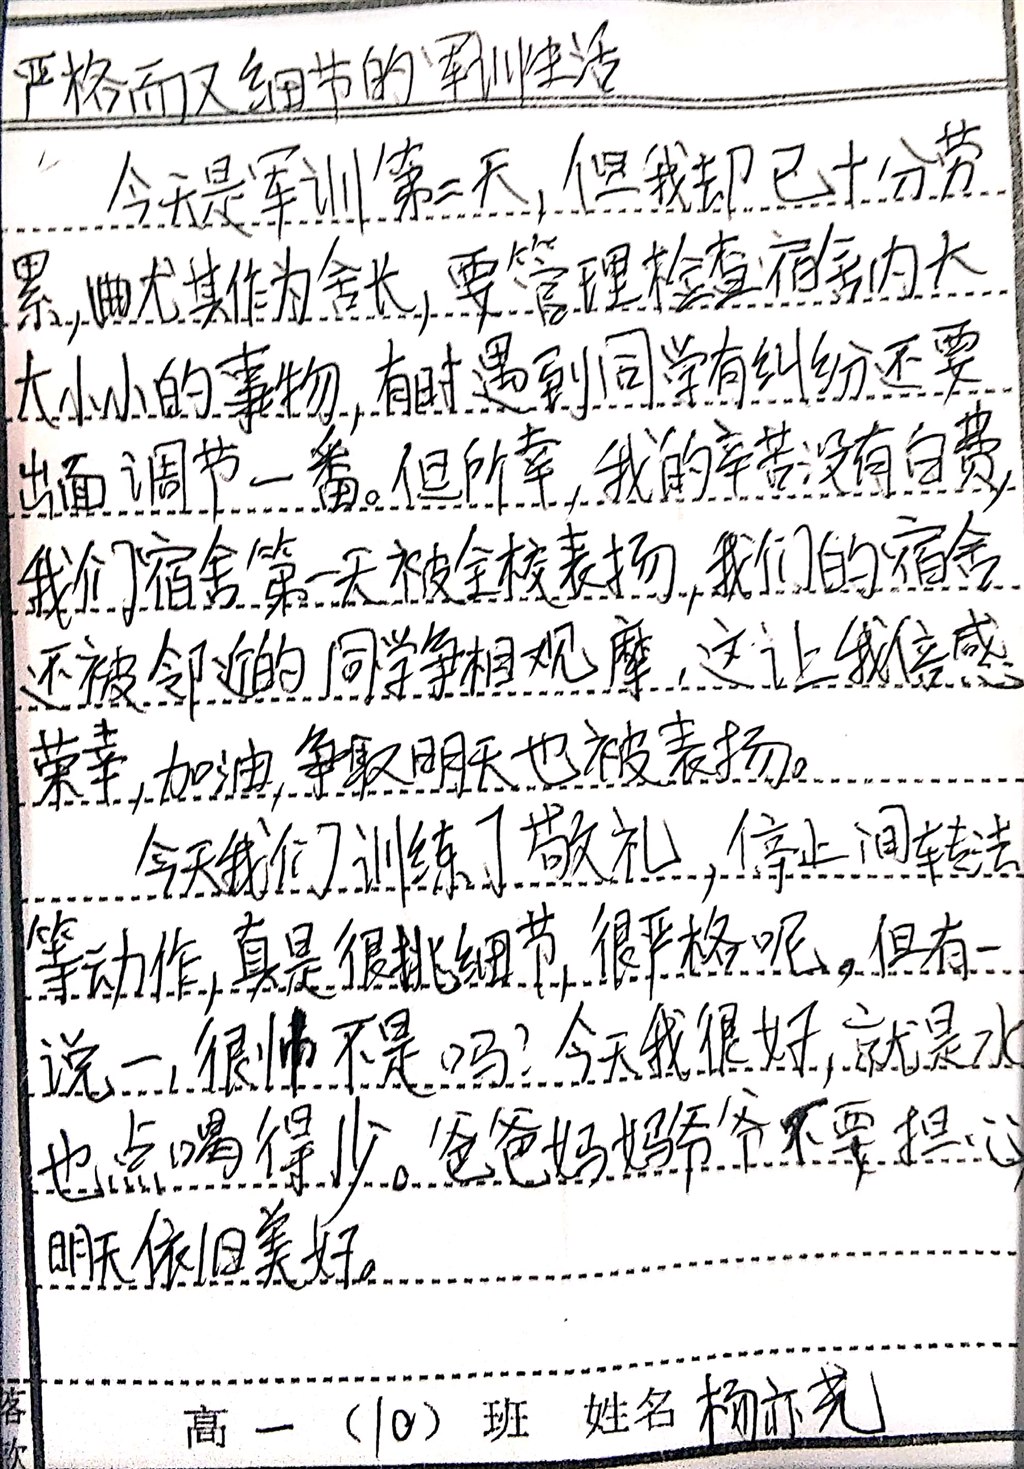 严格而又细节的军训生活
今天是军训第二天，但我却已十分劳
累，尤其作为舍长，要管理检查宿舍内大
大小小的事物，有时遇到同学有纠纷还要
出面调节一番。但所幸，我的辛苦没有白费，
我们宿舍第一天被全校表扬，我们的宿舍
还被邻近的同学争相观摩，这让我倍感
荣幸，加油，争取明天也被表扬。
今天我们训练了敬礼，停止间转法
等动作，真是很挑细节，很严格呢。但有一
说一，很帅不是吗？今天我很好，就是水
也点喝得少。爸爸妈妈爷爷不要担心
明天依旧美好。
高一（10）班 姓名 杨亦尧